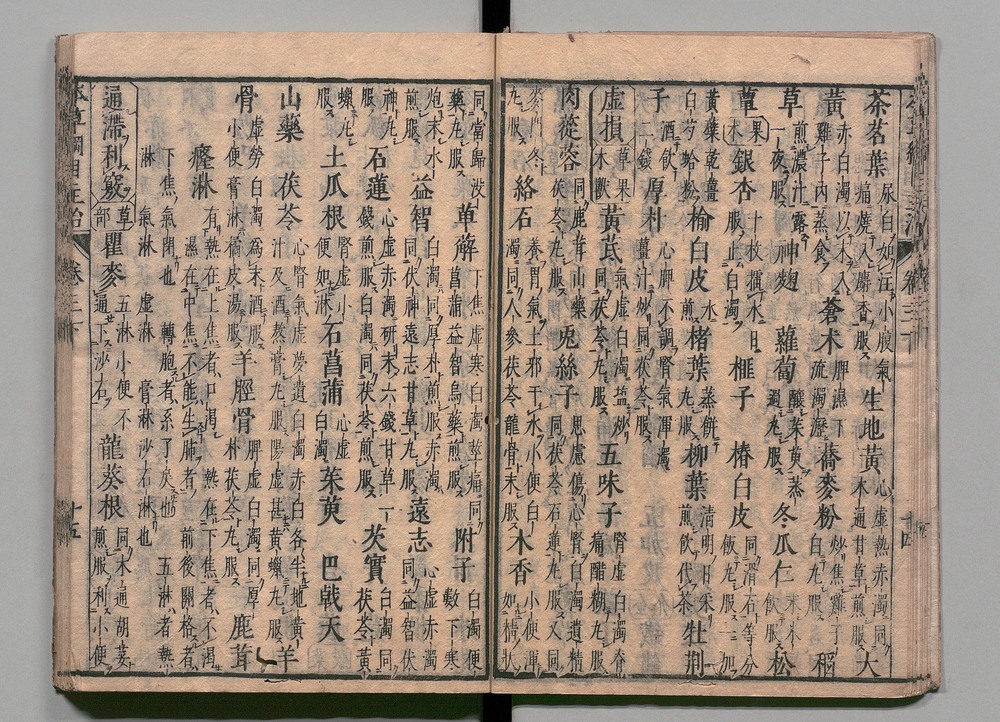 茶茗葉 尿白如注小腹氣
痛燒入麝香服 生地黄 心虛熱赤濁同
木通甘草煎服 大
黄 赤白濁以末入
雞子内蒸食 蒼术 脾濕下
流濁瀝 蕎麥粉 炒焦雞子
白丸服 稻
草 煎濃汁露
一夜服 神麴 蘿蔔 釀茱萸蒸
過丸服 冬瓜仁 末米
飲服 松
蕈 果木 銀杏 十枚擂水日
服止白濁 榧子 椿白皮 同滑石等分
飯丸服一加
黄蘗乾薑
白芍蛤粉 榆白皮 水
煎 楮葉 蒸餅
丸服 柳葉 清明日采
煎飲代茶 牡荆
子 酒飲
二錢 厚朴 心脾不調腎氣渾濁
薑汁炒同茯苓服
虛損 草果
木獸 黄芪 氣虛白濁鹽炒
同茯苓丸服 五味子 腎虛白濁脊
痛醋糊丸服
肉蓯蓉 同鹿茸山藥
茯苓丸服 兎絲子 思慮傷心腎白濁遺精
同茯苓石蓮丸服又
麥門冬
丸服 絡石 養胃氣土邪干水小便白濁
同人參茯苓龍骨末服 木香 小便渾
如精狀
同當歸没
藥丸服 萆薢 下焦虛寒白濁莖痛同
菖蒲益智烏藥煎服 附子 白濁便
數下寒
炮末水
煎服 益智 白濁同厚朴煎服赤濁
同茯神遠志甘草丸服 遠志 心虛赤濁
同益智茯
神丸
服 石蓮 心虛赤濁研末六錢甘草一
錢煎服白濁同茯苓煎服 芡實 白濁同
茯苓黄
蠟丸
服 土瓜根 腎虛小
便如淋 石菖蒲 心虛
白濁 茱萸 巴戟天
山藥 茯苓 心腎氣虛夢遺白濁赤白各半地黄
汁及酒熬膏丸服陽虛甚黄蠟丸服 羊
骨 虛勞白濁為末酒服
小便膏淋橘皮湯服 羊脛骨 脾虛白濁同厚
朴茯苓丸服 鹿茸
癃淋 有熱在上焦者口渴 熱在下焦者不渴
濕在中焦不能生肺者 前後關格者
下焦氣閉也 轉胞者系了戾也 五淋者熱
淋 氣淋 虛淋 膏淋沙石淋也
通滯利竅 草部 瞿麥 五淋小便不
通下沙石 龍葵根 同木通胡荽
煎服利小便
本草綱目主治 卷三下 十五